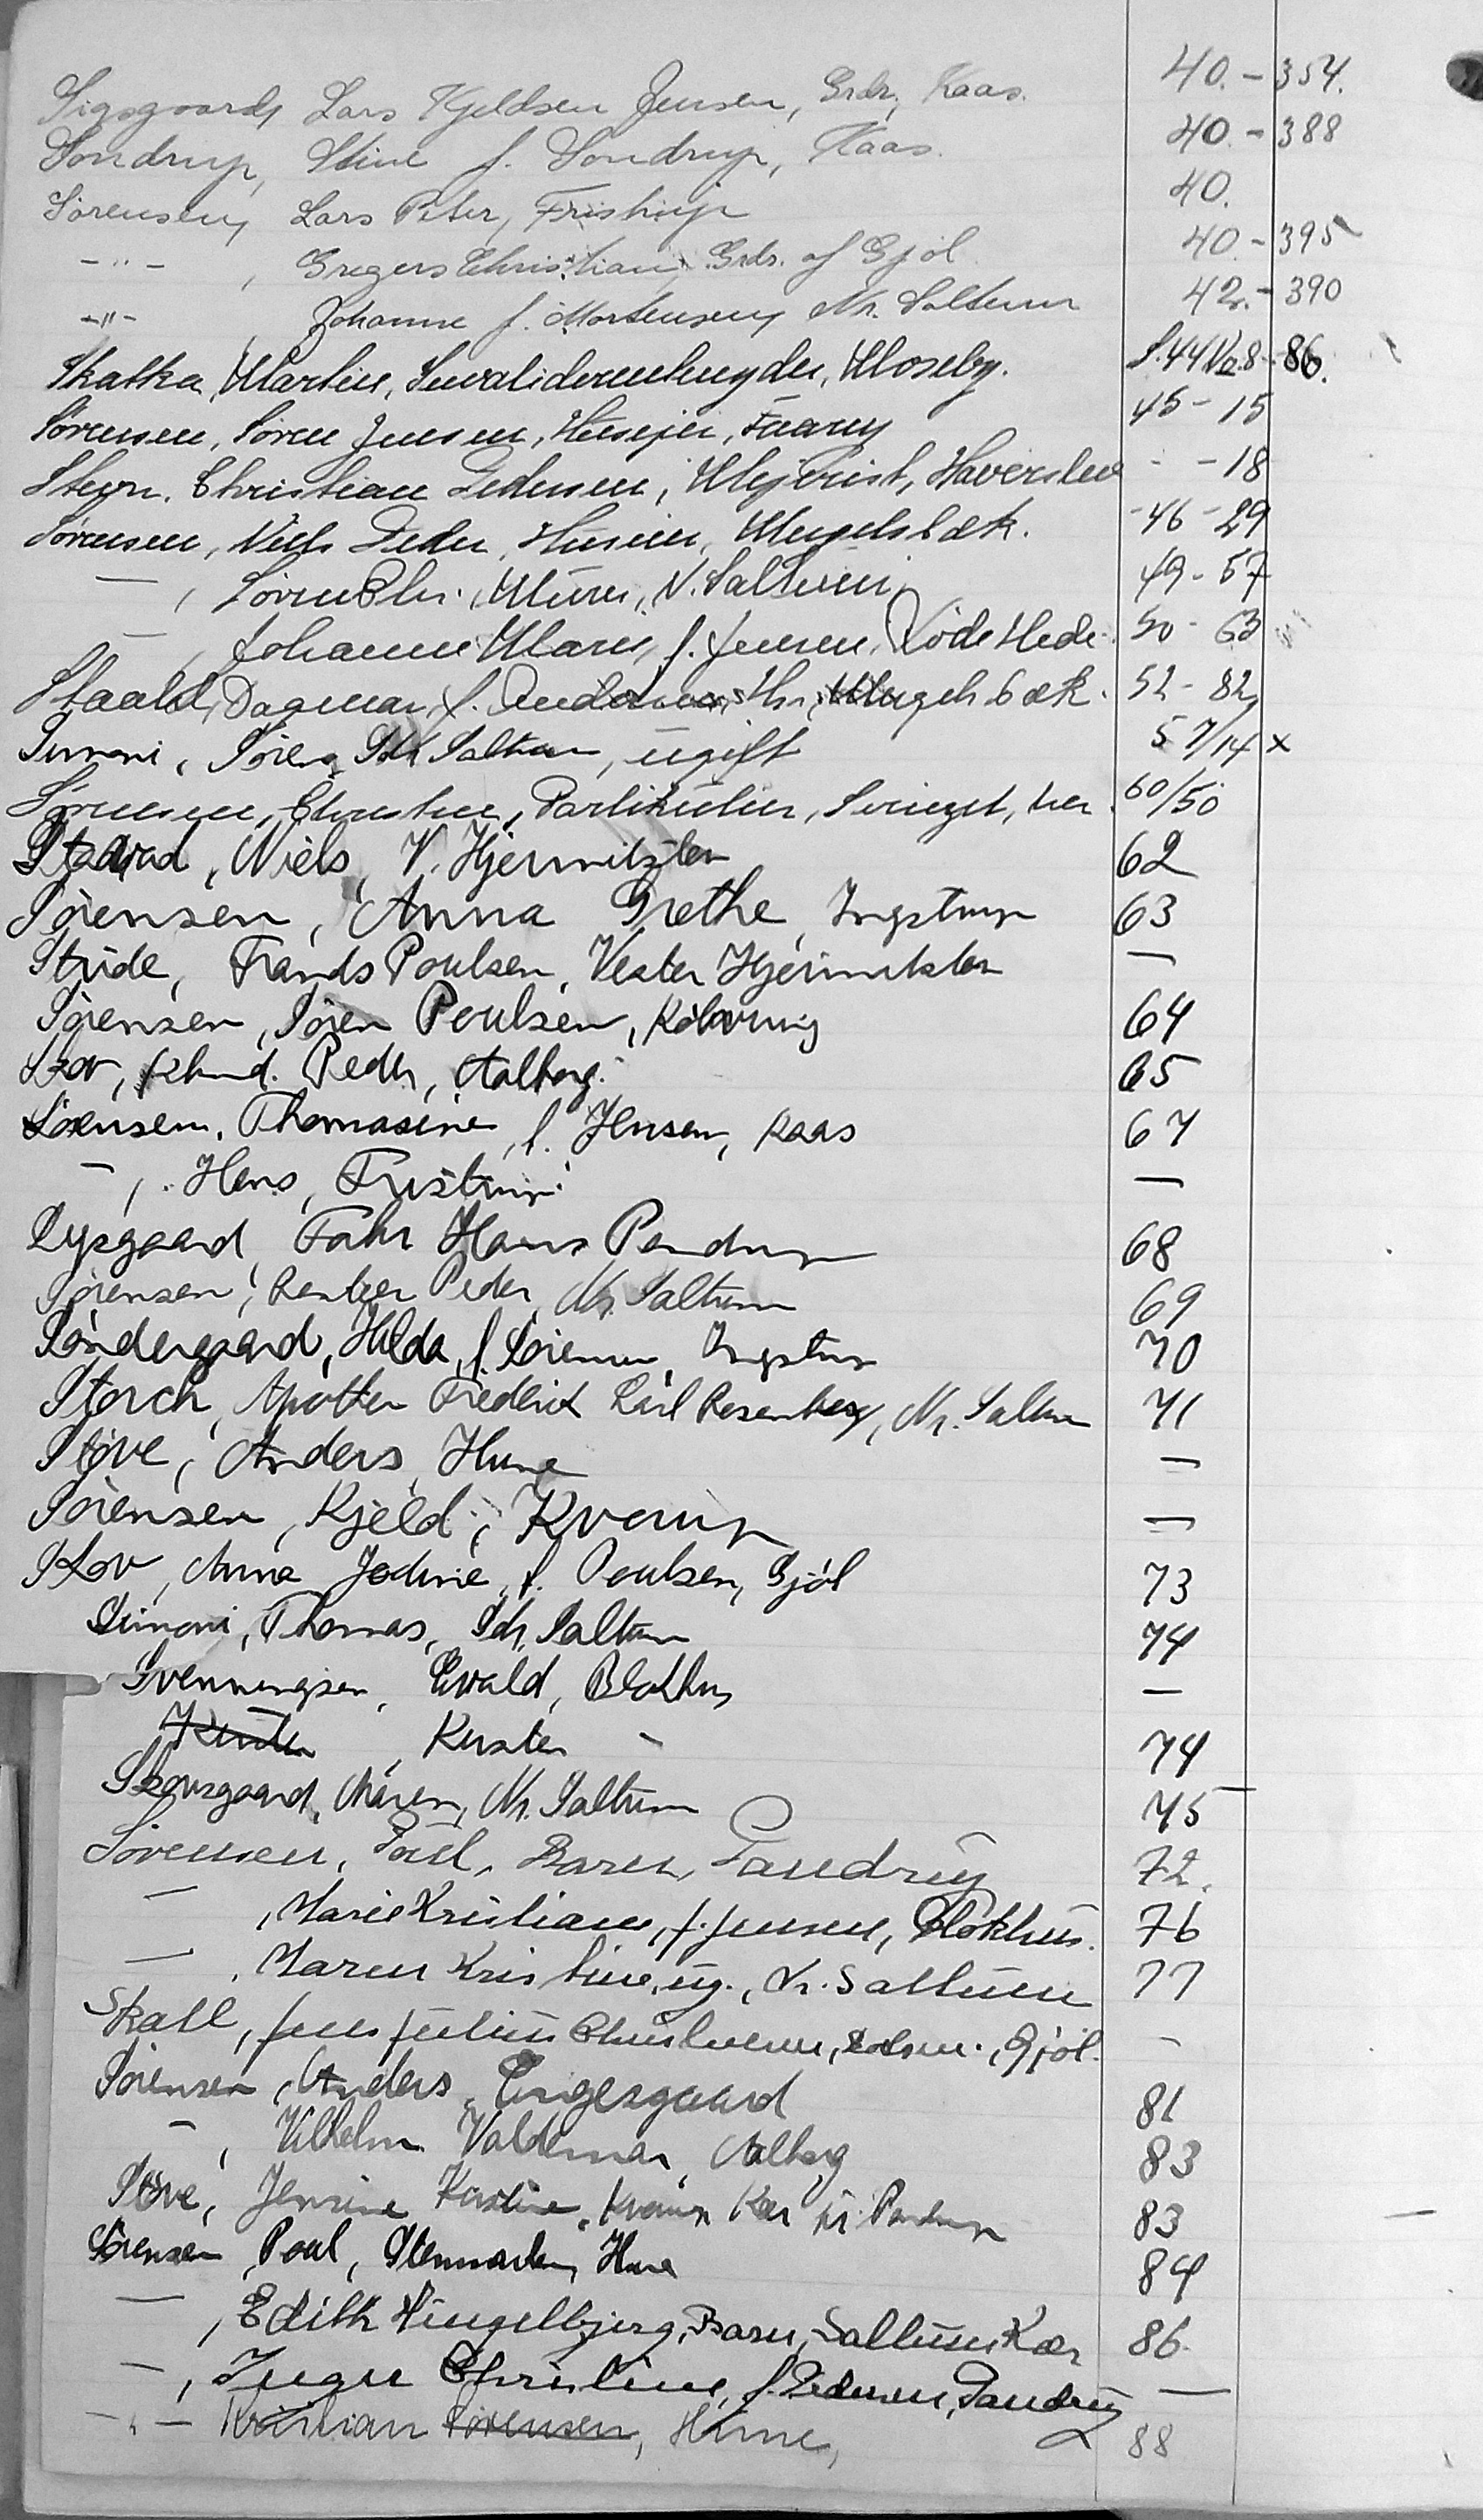 Sigsgaard, Lars Kjeldsen Jensen, Grdr., Kaas. 40. - 354.
Sondrup, Stine f. Sondrup, Kaas. 40. - 388
Sørensen, Lars Peter, Fristrup 40.
-"- , Gregers Christian, Grdr. af Gjøl 40. - 395
-"- Johanne f. Mortensen, Nr. Saltum 42. - 390
Skatka, Martin, Moseby. S.44 No.8 - 86.
Sørensen, Søren Jensen, Husejer, Faarup 45 - 15
Steyn, Christian Pedersen, Mejerist, Haverslev - - 18
Sørensen, Niels Peder, Husejer, Mugelsbæk. - 46 - 29
— , Søren Chr., Murer, N. Saltum 49 - 57
— , Johanne Marie, f. Jensen, Røde Hede. 50 - 63
Staald, Dagmar, f. Andersen, Hr., Mugelsbæk. 52 - 82
Simoni, Søren, Sdr. Saltum, ugift 57/14 x
Sørensen, Christen, Partikulier, 60/50
Stadvad, Niels, V. Hjermitslev 62
Sørensen, Anna Grethe, Ingstrup 63
Stride, Frands Poulsen, Vester Hjermitslev —
Sørensen, Søren Poulsen, Kollerup 64
Skov, Peder, Aalborg. 65
Sørensen, Thomasine, f. Jensen, Kaas 67
— , Hans, Fristrup —
Lysgaard, Fahr Hans Pandrup 68
Sørensen, Rentier Peder, Nr. Saltum 69
Søndergaard, Hilda, f. Sørensen, Ingstrup 70
Storch, Apotheker Frederik Carl Rosenberg, Nr. Saltum 71
Støve, Anders, Hune —
Sørensen, Kjeld, Kvorup —
Skov, Anna Jodine, f. Poulsen, Gjøl 73
Simoni, Thomas, Sdr. Saltum 74
Svenningsen, Ewald, Blokhus —
Kirsten , Kirsten - 74
Skovsgaard, Maren, Nr. Saltum 75
Sørensen, Poul, Barn, Pandrup 72.
— , Marie Kristiane, f. Jensen, Blokhus. 76
— , Maren Kristine, ug., Nr. Saltum 77
Skall, Jens Julius Christensen, Gjøl. -
Sørensen, Anders, Engesgaard 81
— , Vilhelm Valdemar, Aalborg 83
Støve, Jensine Kirstine, Kvorup Kær pr. Pandrup 83
Sørensen, Poul, Stenmarken, Hune 84
— , Edith Hingelbjerg, Barn, Saltum Kær 86.
— , Inger Christine, f. Pedersen, Pandrup —
-"- Kristian Sørensen, Hune, 88